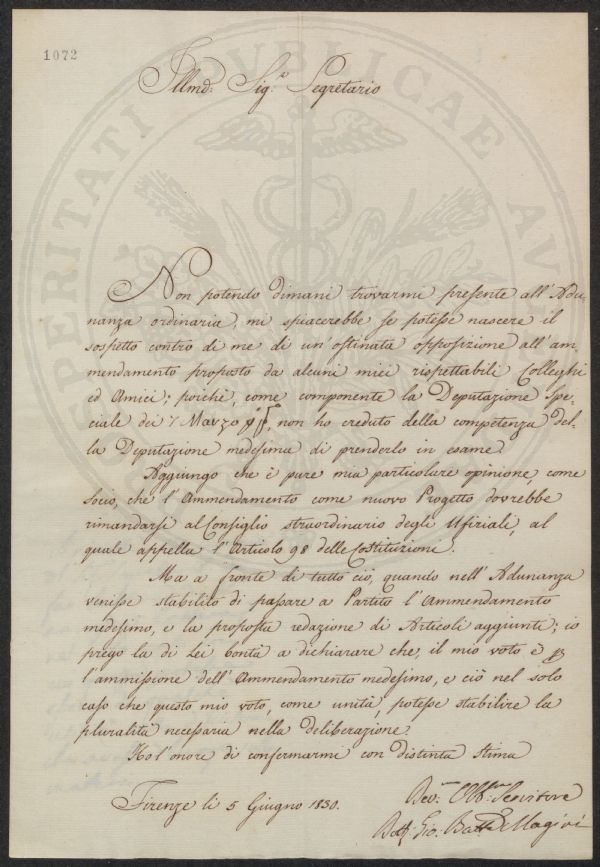 1072
Illmo: Sig.re Segretario
Non potendo dimani trovarmi presente all'Adu-
nanza ordinaria, mi spiacerebbe se potesse nascere il
sospetto contro di me di un'ostinata opposizione all'am-
mendamento proposto da alcuni miei rispettabili Colleghi
ed Amici; poichè, come componente la Deputazione Spe-
ciale dei 7 Marzo non ho creduto della competenza del-
la Deputazione medesima di prenderlo in esame.
Aggiungo che è pure mia particolare opinione, come
socio, che l'Ammendamento come nuovo Progetto dovrebbe
rimandarsi al Consiglio straordinario degli Ufiziali, al
quale appella l'Articolo 98 delle Costituzioni.
Ma a fronte di tutto ciò, quando nell'Adunanza
venisse stabilito di passare a Partito l'Ammendamento
medesimo, e la proposta redazione di Articoli aggiunti; io
prego la di Lei bontà a dichiarare che, il mio voto è
l'ammissione dell'Ammendamento medesimo, e ciò nel solo
caso che questo mio voto, come unità, potesse stabilire la
pluralità necessaria nella deliberazione.
Ho l'onore di confermarmi con distinta stima
Firenze li 5 Giugno 1830.
Dev: Obb: Servitore
Dott: Gio. Batta
PROSPERITATI PUBLICAE AU